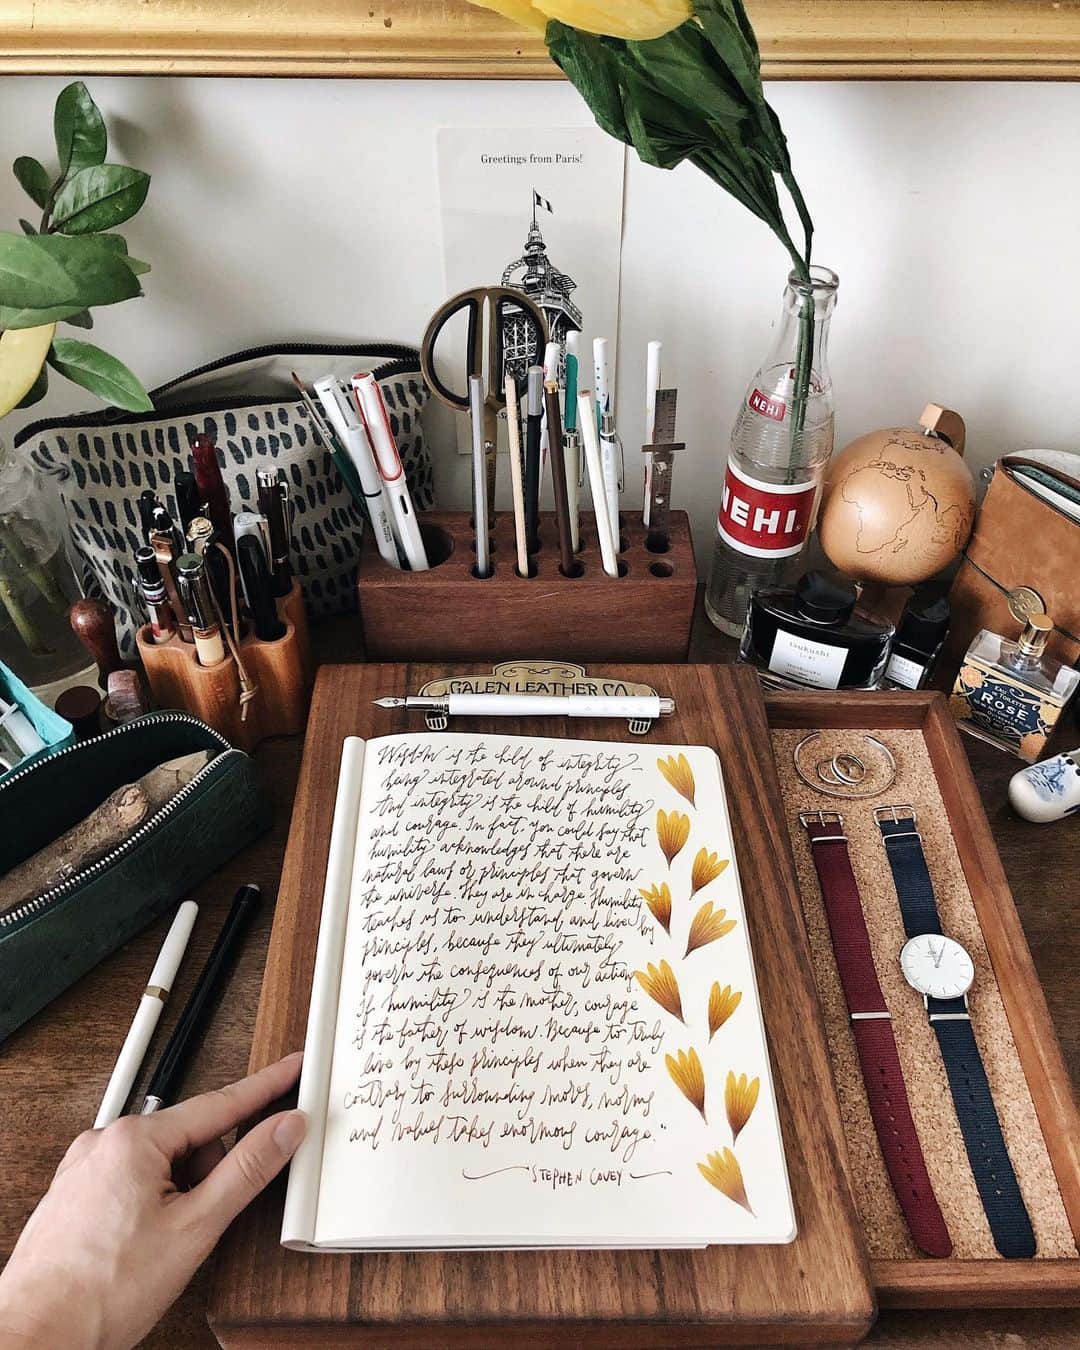 Greetings from Paris!
NEHI
NEHI®
tsukushi
EAU DE TOILETTE
ROSE
GALEN LEATHER CO.
Wisdom is the child of integrity –
being integrated around principles.
And integrity is the child of humility
and courage. In fact, you could say that
humility acknowledges that there are
natural laws or principles that govern
the universe. They are in charge. Humility
teaches us to understand and live by
principles, because they ultimately
govern the consequences of our action.
If humility is the mother, courage
is the father of wisdom. Because to truly
live by these principles when they are
contrary to surrounding mores, norms
and values takes enormous courage."
STEPHEN COVEY